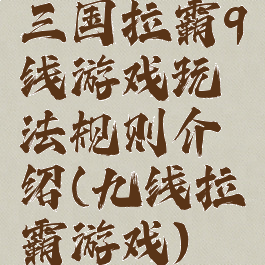 三国拉霸9
线游戏玩
法规则介
绍(九线拉
霸游戏)